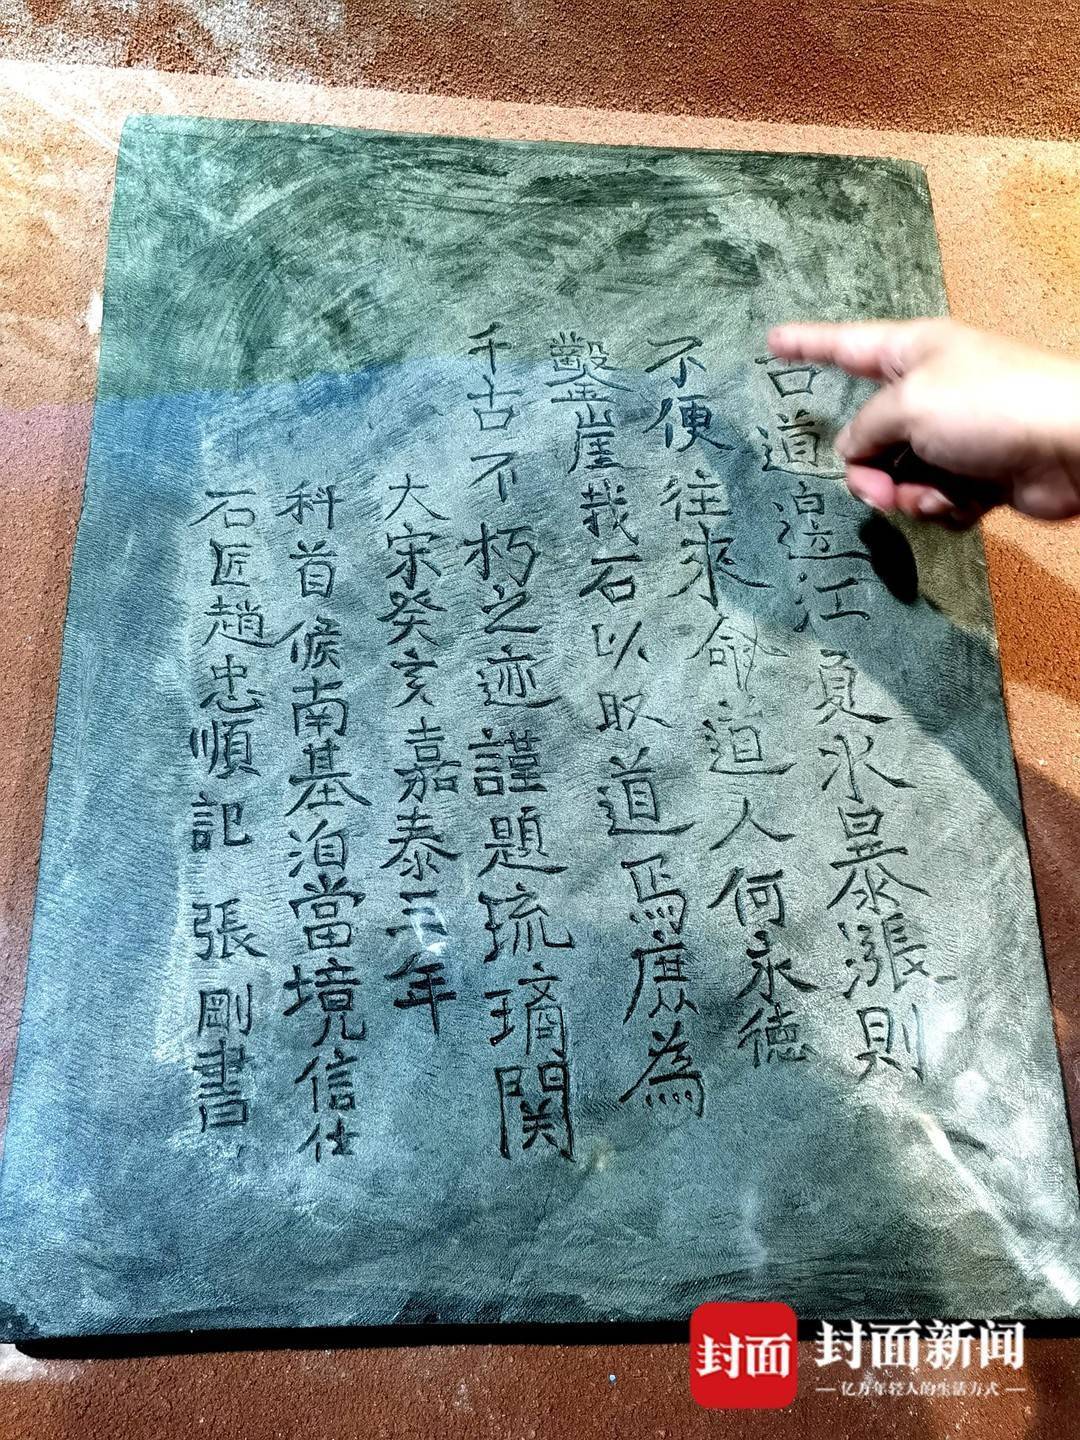 古道邉江夏水暴漲則
不便往來命道人何永德
鑿崖我石以取道焉庶為
千古不朽之迹謹題琉璃関
大宋癸亥嘉泰三年
科首候南基泊當境信仕
石匠趙忠順記張剛書
封面
封面新闻
亿万年轻人的生活方式